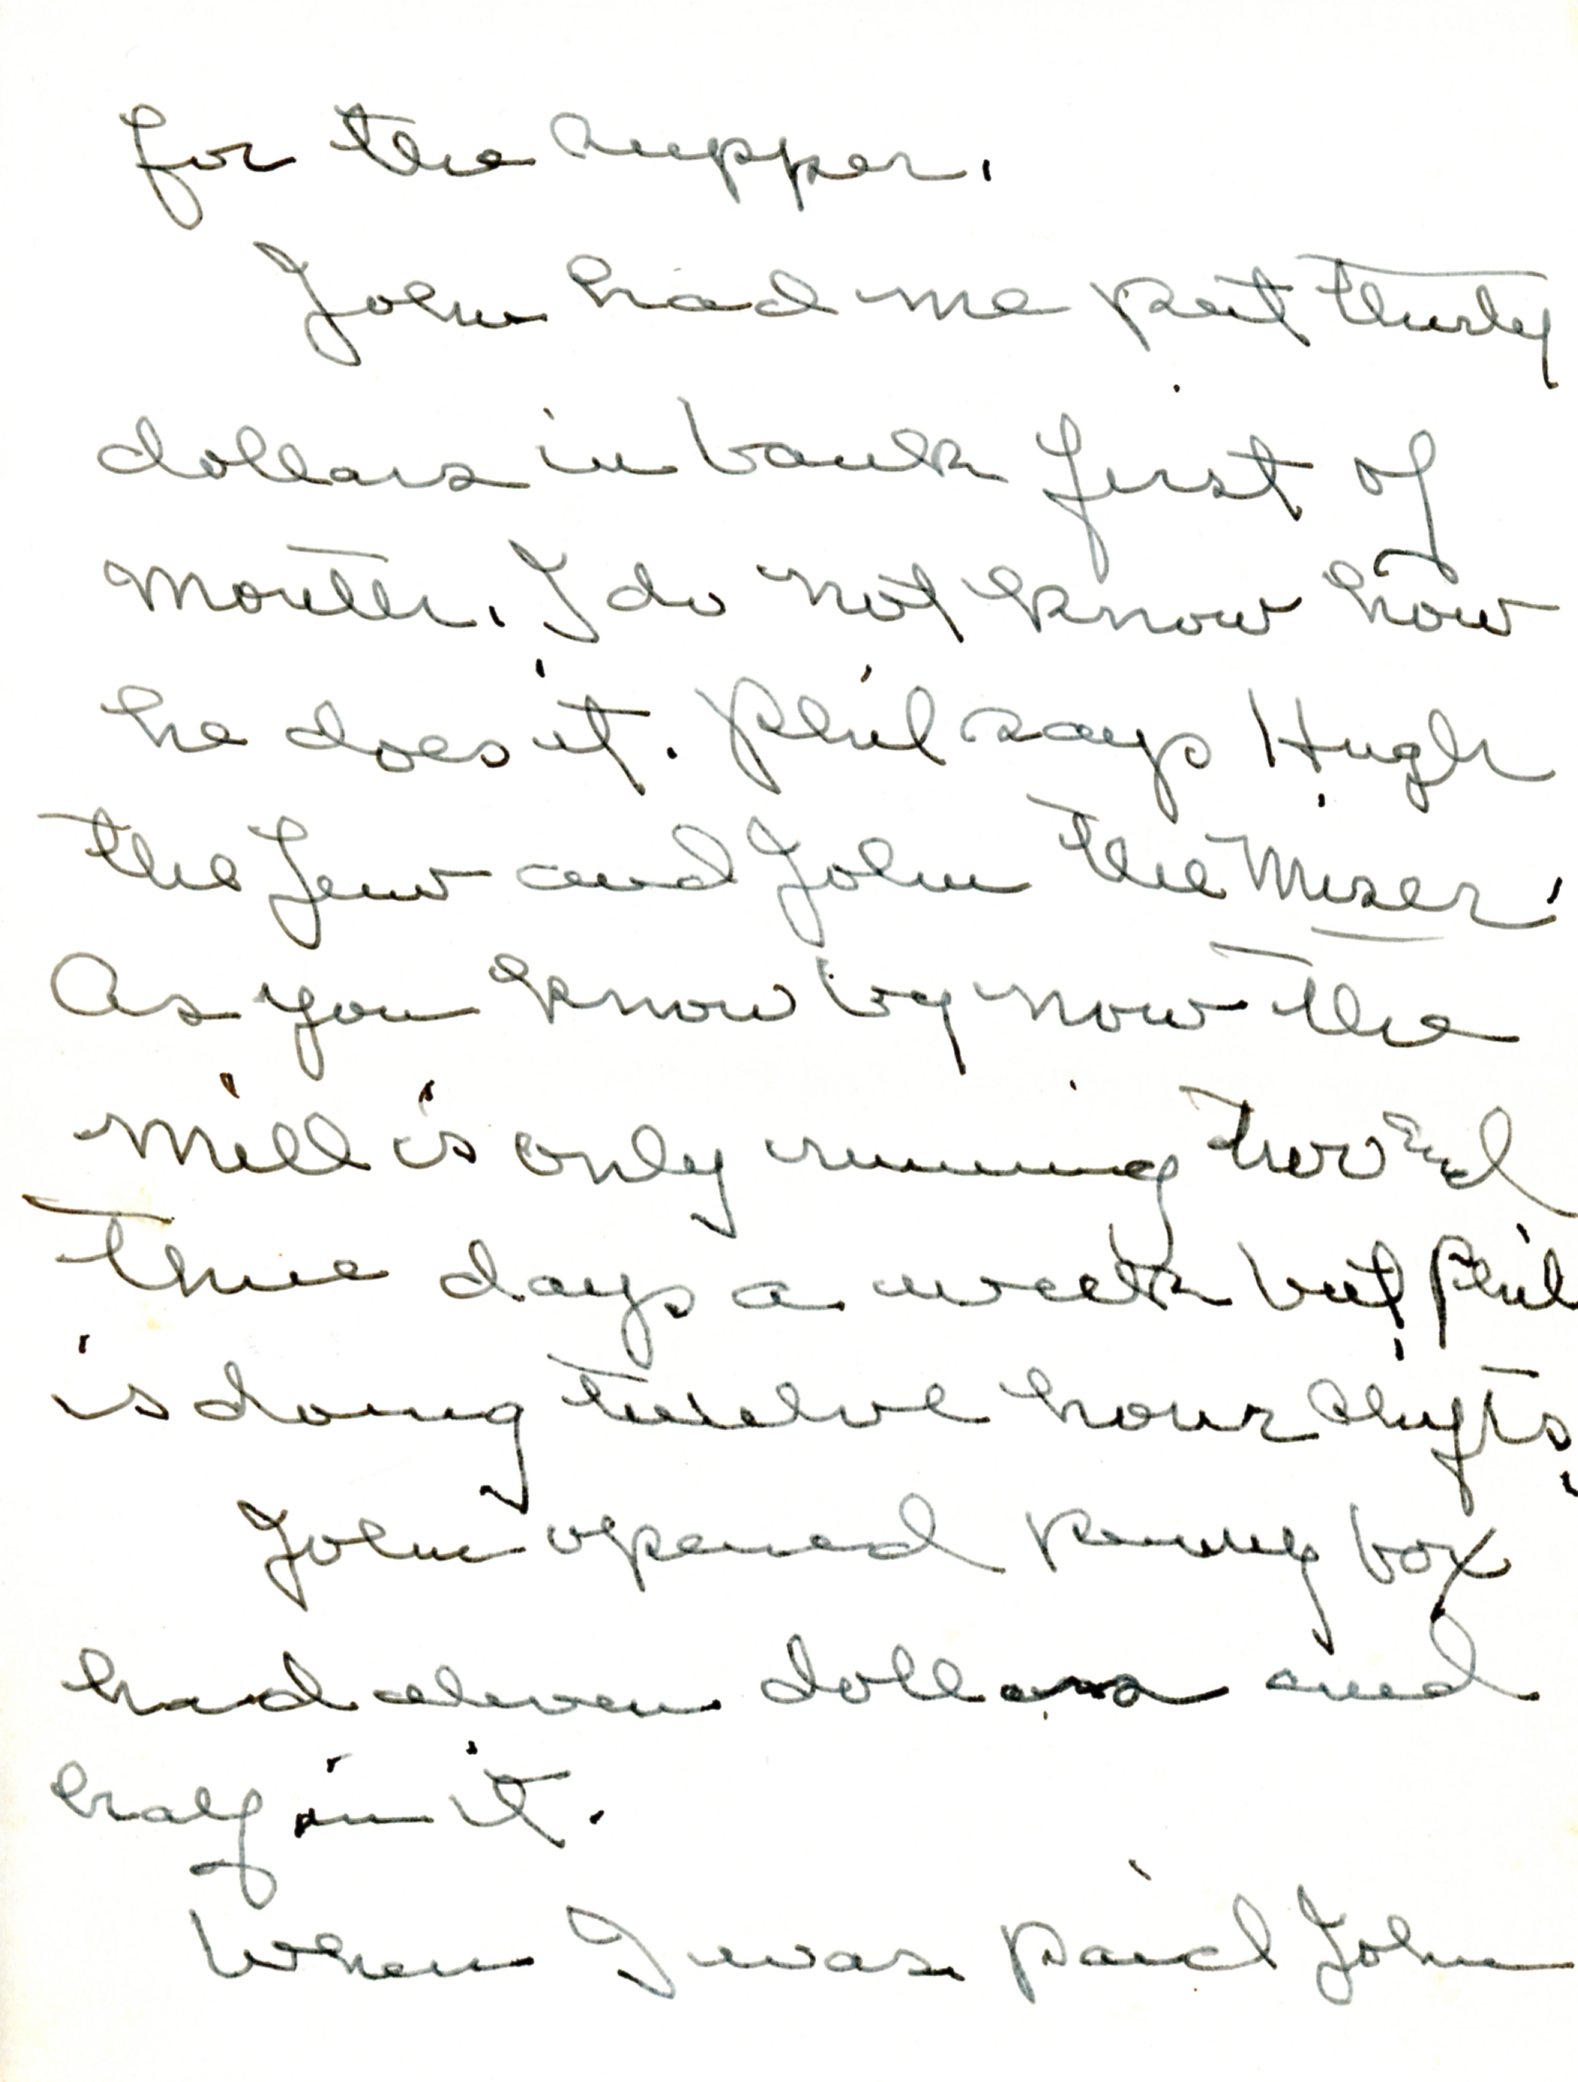 for the supper.
John had me put thirty
dollars in bank first of
month. I do not know how
he does it. Phil says Hugh
the Jew and John the Miser.
As you know by now the
mill is only running two and
three days a week but Phil
is doing twelve hour shifts.
John opened penny box
had eleven dollars and
half in it.
When I was paid John